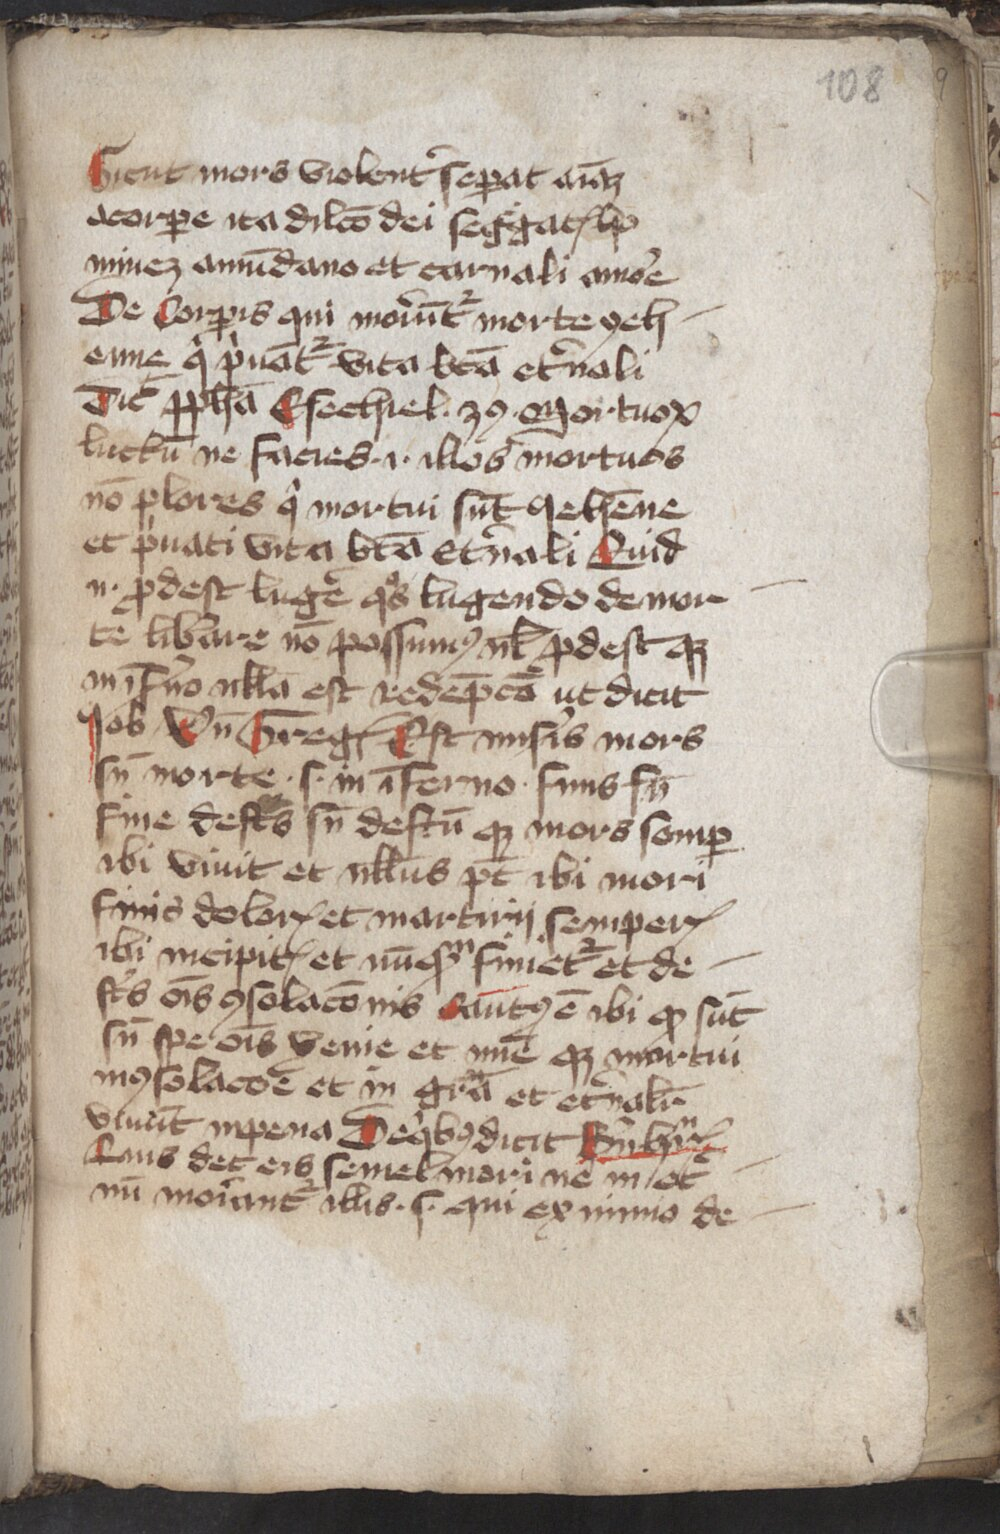 108 9
Sicut mors violent̉ seꝑat aīaʒ
acorꝑe ita dilc̄o dei segͥgat ho
mineʒ amūdano et carnali amoͤe
De Corꝑis qui morūt᷑ morte geh
enne qͥ pͥuāt᷑ vita bt̄a et̉nali
Dic̄ ꝓpha Esechiel . mortuoꝝ
luctū ne facies .i. illos mortuos
nō plores qͥ mortui sūt gehēne
et pͥuati vita bt̄a et̉nali Quid
n. ꝓdest lugē qͦs lugendo de mor
te lib̉are nō possumꝰ nl̄ ꝓdest qꝫ
in īf̉no nlla est redēpc̄o ut dicit
Job Vn̄ Greg Est mis̉is mors
sn̄ morte .s. in īferno . finis sn̄
fine defc̄s sn̄ defc̄tū qꝫ mors semꝑ
ibi viuit et nllus pt̄ ibi mori
finis dolor et martirij semper
ibi incipit et nūqᷓ finiet᷑ et de
fc̄s oīs ꝯsolacōnis ē ibi qꝫ sūt
sn̄ spe oīs venie et mīe qꝫ mortui
in ꝯsolacōe et in gr̄a et et̉nalit̉
viuūt in pena De qͥbꝰ dicit Bn̄h
Quis det eis semel mori ne in et̉
nū moriant᷑ illis .s. qui ex nimio de